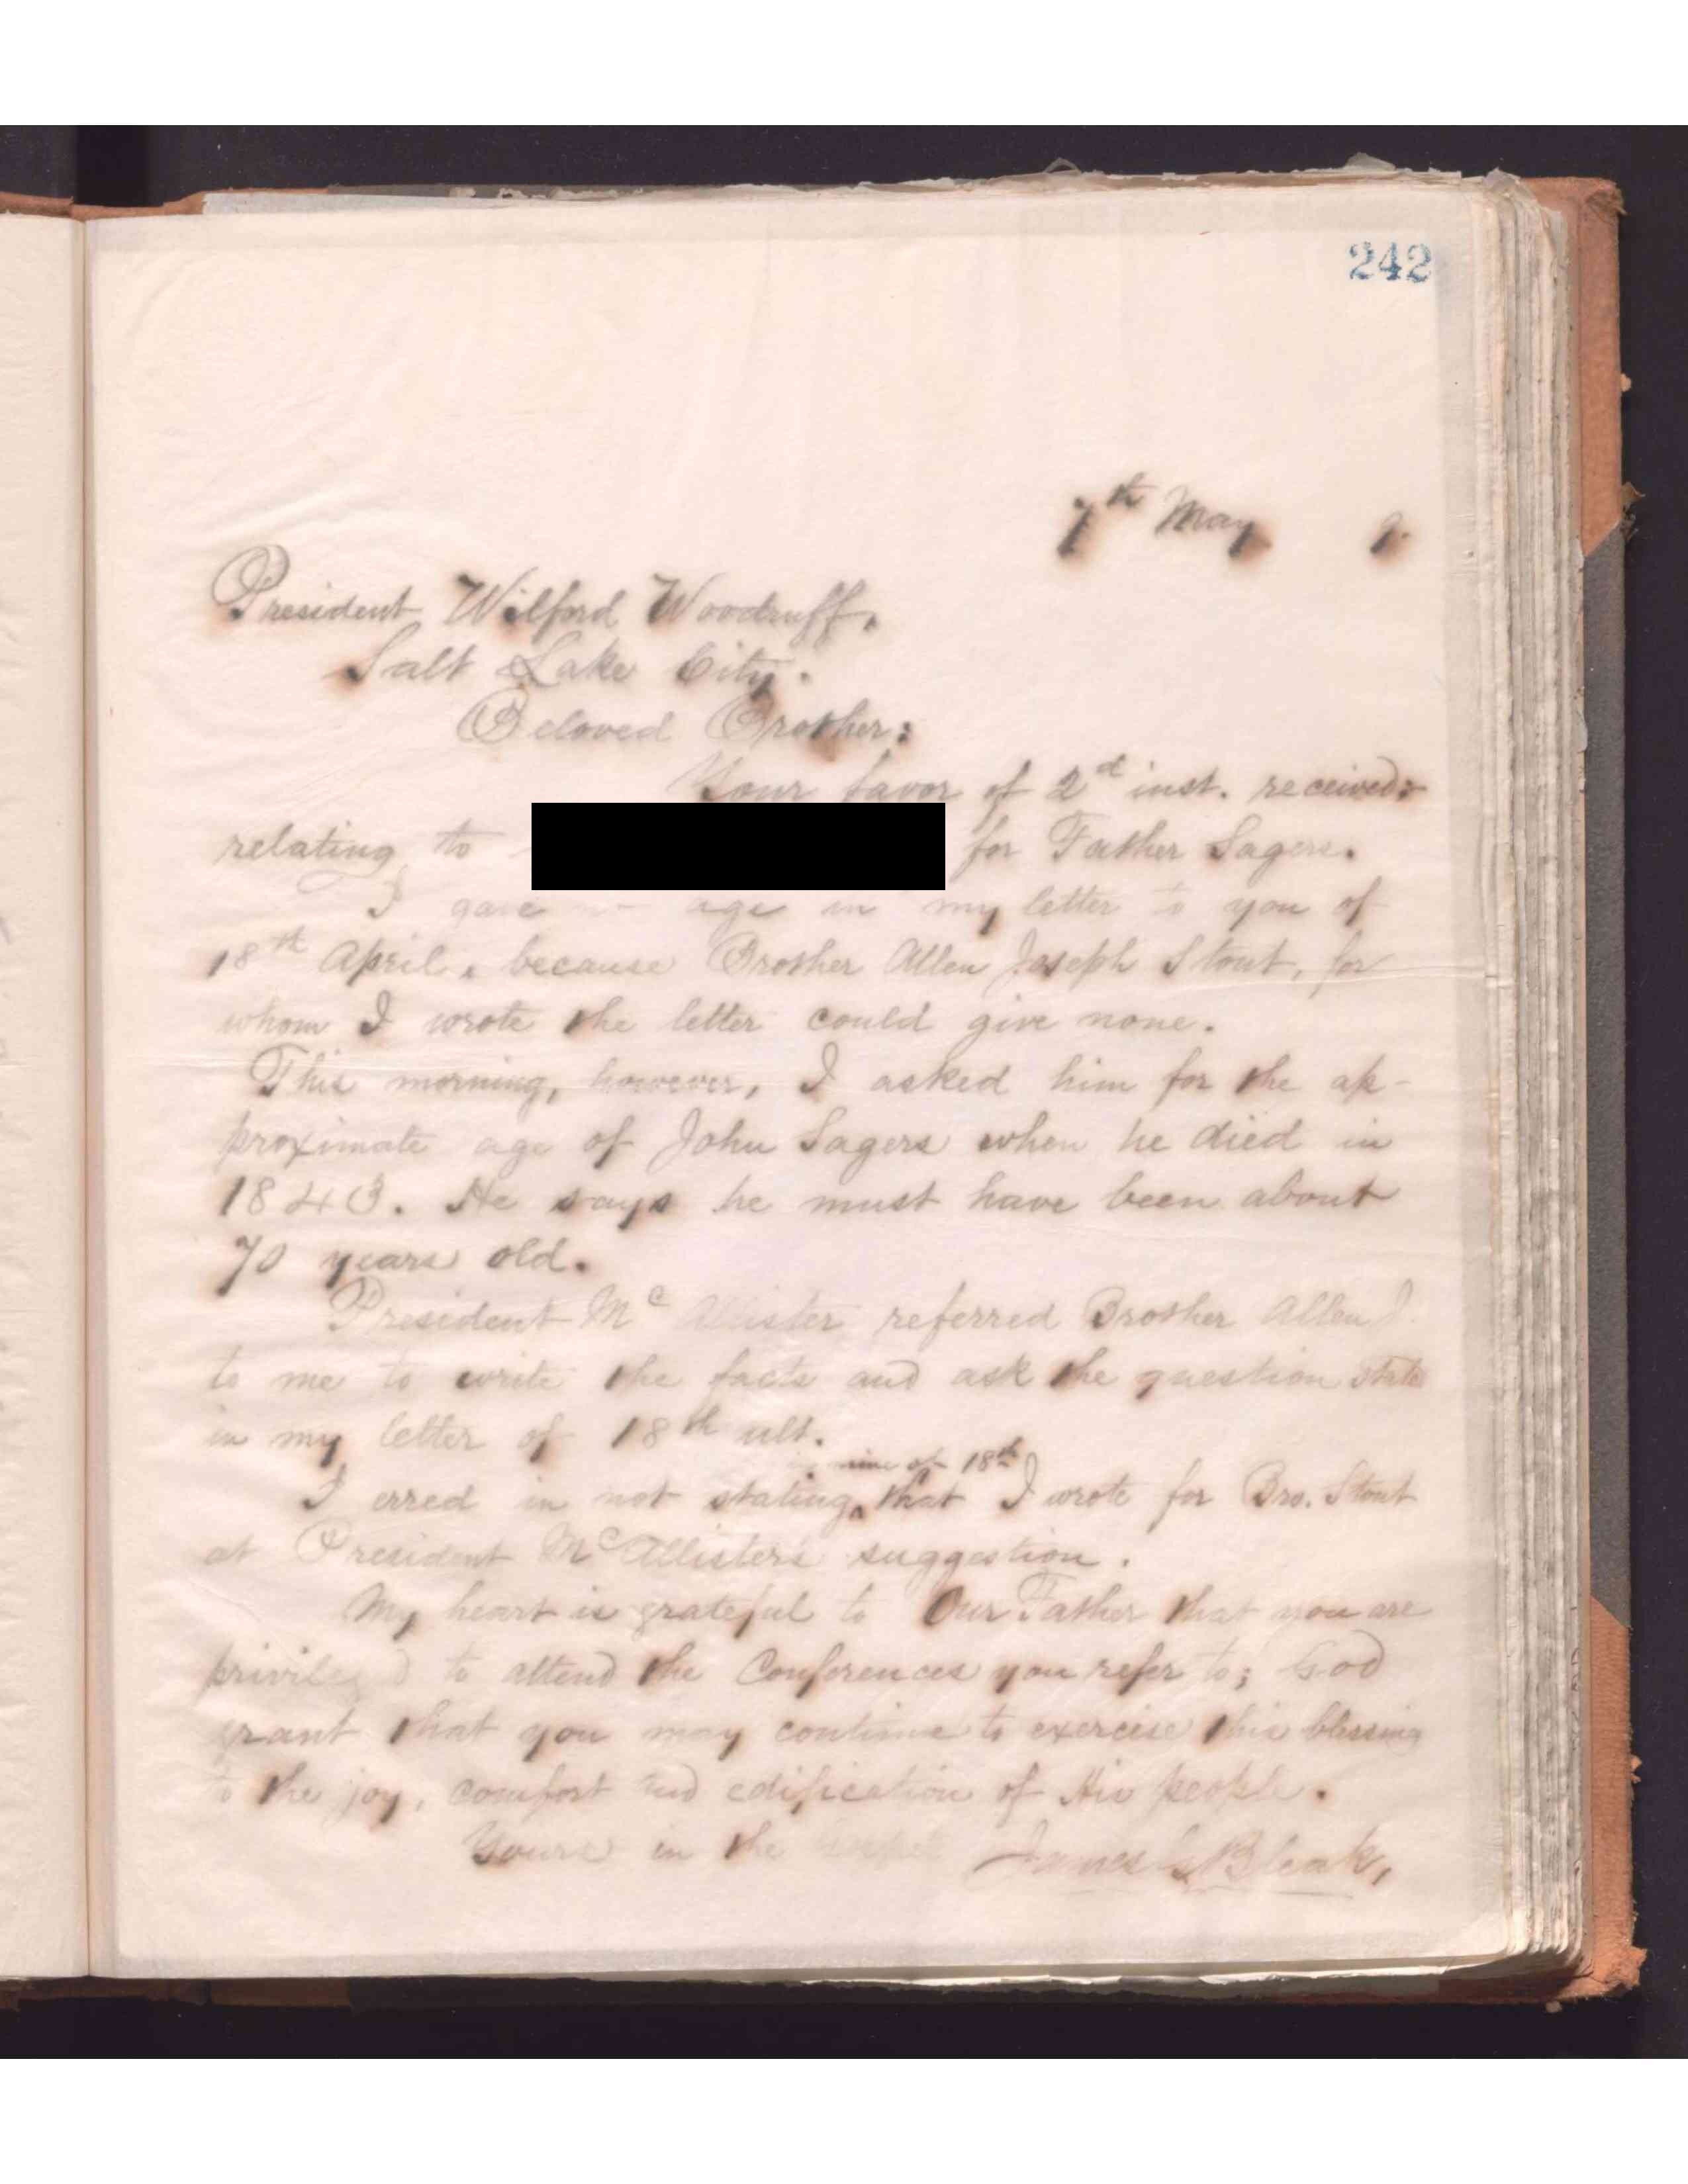 242
7th May 9.
President Wilford Woodruff,
Salt Lake City.
Beloved Brother:
Your favor of 2d inst. received:
relating to for Father Sagers.
I gave no age in my letter to you of
18th April, because Brother Allen Joseph Stout, for
whom I wrote the letter could give none.
This morning, however, I asked him for the ap-
proximate age of John Sagers when he died in
1843. He says he must have been about
70 years old.
President Mc Allister referred Brother Allen J.
to me to write the facts and ask the question
in my letter of 18th ult.
mine of 18th
I erred in not stating ^ that I wrote for Bro. Stout
at President McAllister's suggestion.
My heart is grateful to Our Father that you are
privileged to attend the Conferences you refer to; God
grant that you may continue to exercise this blessing
to the joy, comfort and edification of His people.
Yours in the
James G Bleak,